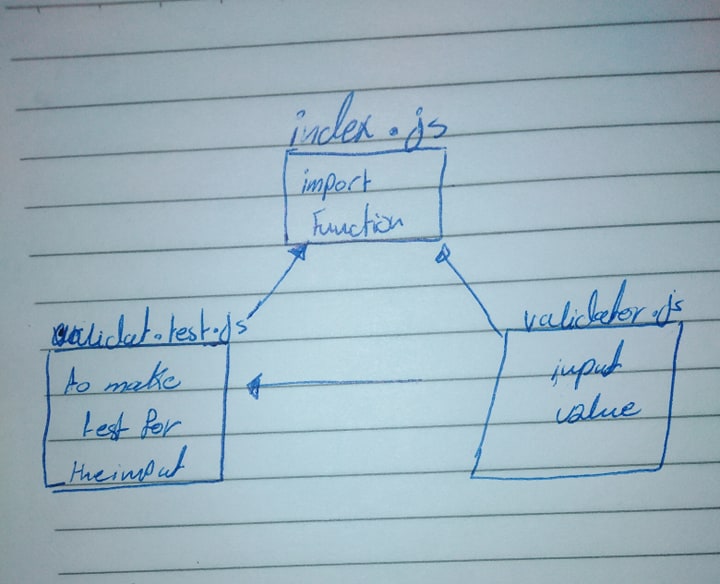 index.js
import
Function
validat.test.js
to make
test for
the input
validator.js
input
value